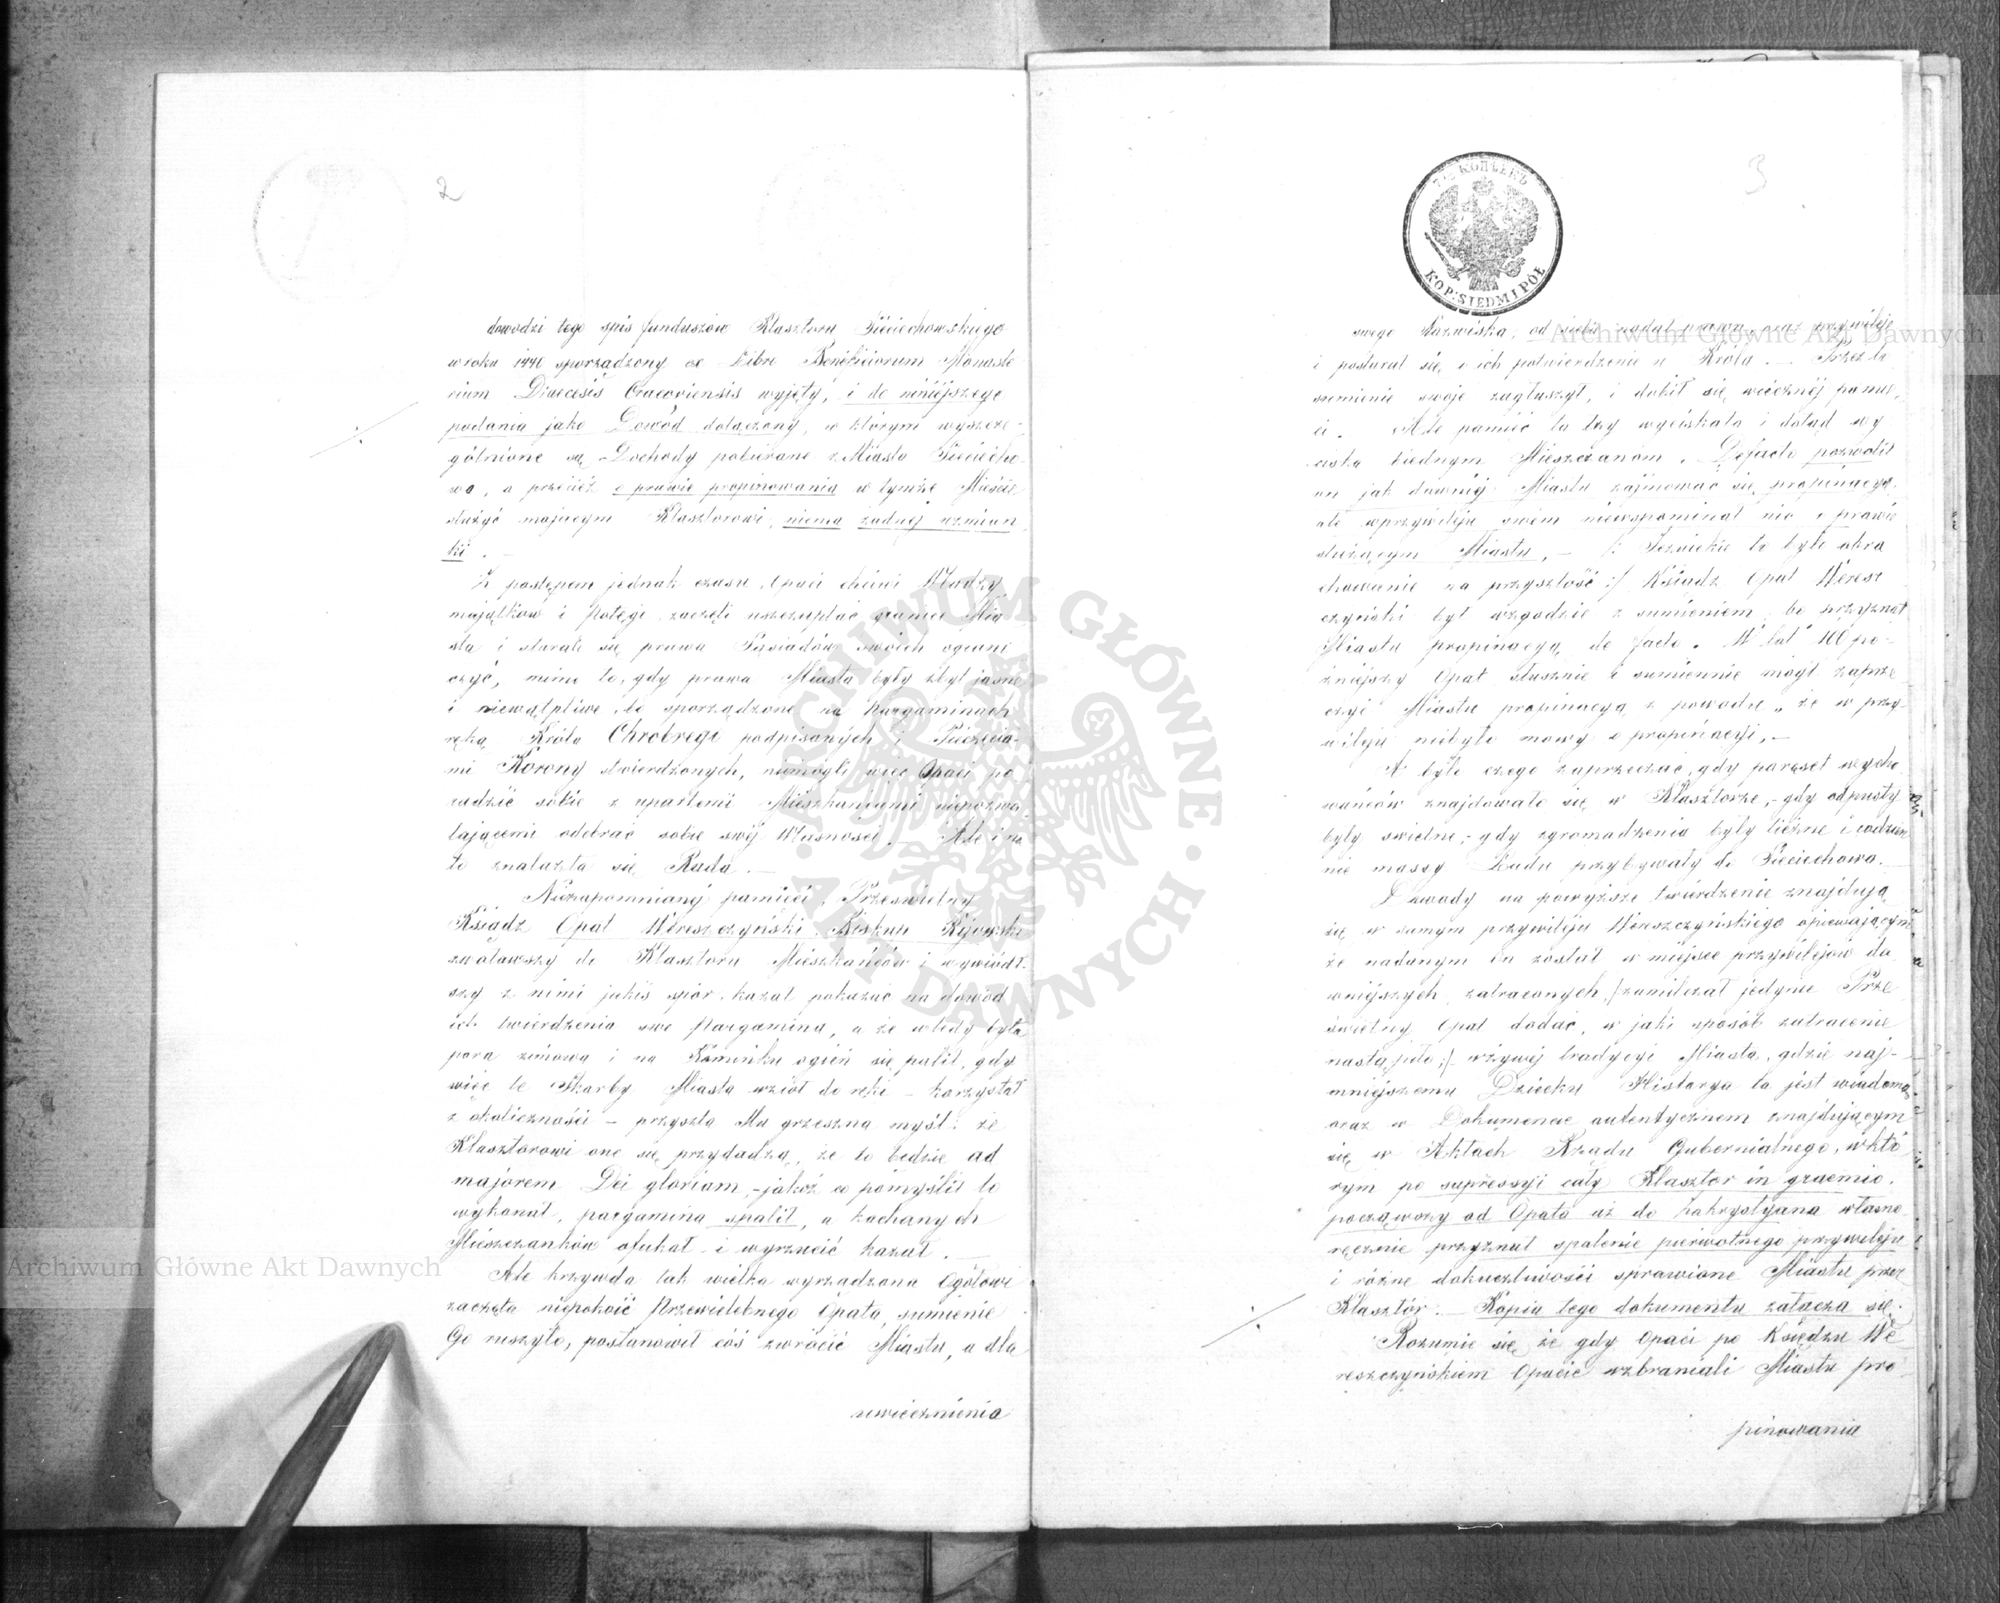 2
dowodzi tego spis funduszów Klasztoru Sieciechowskiego
w roku 1441 sporządzony ex Libro Beneficiorum Monaste
rium Diaecesis Cracoviensis wyjęty, i do niniejszego
podania jako Dowód dołączony, w którym wyszcze-
gólnione są Dochody pobierane z Miasta Sieciecho-
wa, a przecież o prawie propinowania w tymże Mieście
służyć mającym Klasztorowi, niema żadnej wzmian
ki. —
Z postępem jednak czasu, Opaci chciwi Władzy
majątków i Potęgi zaczęli uszczuplać granice Mia
sta i starali się prawa Sąsiadów swoich ograni
czyć, mimo to, gdy prawa Miasta były zbyt jasne
i niewątpliwe, bo sporządzone na Pargaminach
ręką Króla Chrobrego podpisanych i Pieczęcia-
mi Korony stwierdzonych, niemogli więc Opaci po
radzić sobie z upartemi Mieszkańcami niepozwa
lającemi odebrać sobie swój Własności. — Ale i na
to znalazła się Rada. —
Niezapomnianéj pamięci, Prześwietny
Ksiądz Opat Wereszczyński, Biskup Kijowski
zwoławszy do Klasztoru Mieszkańców i wywiódł-
szy z nimi jakiś spór, kazał pokazać na dowód
ich twierdzenia swe Pargamina, a że wtedy była
pora zimowa i na Kominku ogień się palił, gdy
więc te Skarby Miasta wziął do ręki — korzystał
z okoliczności — przyszła Mu grzeszna myśl: że
Klasztorowi one się przydadzą, że to będzie ad
majorem Dei gloriam, — jakoż co pomyślił to
wykonał, pargamina spalił, a kochanych
Mieszczanków ofukał i wyrzucić kazał. —
Ale krzywda tak wielka wyrządzona Ogółowi
zaczęła niepokoić Przewielebnego Opata, sumienie
Go ruszyło, postanowił cóś zwrócić Miastu, a dla
uwiecznienia
3
7½ КОПѢЕКЪ
KOP: SIEDM I PÓŁ
swego Nazwiska, od siebie nadał prawa, oraz przywileje
i postarał się o ich potwierdzenie u Króla. — Przez to
sumienie swoje zagłuszył, i dobił się wiecznéj pamię
ci. Ale pamięć ta łzy wyciskała i dotąd wy
ciska biednym Mieszczanom. Defacto pozwolił
on jak dawniéj Miastu zajmować się propinacyą,
ale w przywileju swém niewspominał nic o prawie
służącym Miastu, — /: Jezuickie to było obra
chowanie na przyszłość :/ Ksiądz Opat Weresz
czyński był w zgodzie z sumieniem, bo przyznał
Miastu propinacyą de facto. W lat 100 pó-
źniejszy Opat słusznie i sumiennie mógł zaprze
czyć Miastu propinacyą z powodu, że w przy-
wileju niebyło mowy o propinacyi, —
A było czego zaprzeczać, gdy paręset wycho
wańców znajdowało się w Klasztorze, — gdy odpusty
były świetne, — gdy zgromadzenia były liczne i codzien
nie massy Ludu przybywały do Sieciechowa. —
Dowody na powyższe twierdzenie znajdują
się w samym przywileju Wereszczyńskiego opiewającym
że nadanym on został w miejsce przywilejów da
wniejszych zatraconych, /: zamilczał jedynie Prze
świetny Opat dodać, w jaki sposób zatracenie
nastąpiło :/ w żywéj tradycyi Miasta, gdzie naj-
mniejszemu Dziecku Historya ta jest wiadomą
oraz w Dokumencie autentycznem znajdującym
się w Aktach Rządu Gubernialnego, w któ
rym po supressyi cały Klasztor in graemio,
począwszy od Opata aż do Zakrystyana własno
ręcznie przyznał spalenie pierwotnego przywileju
i różne dokuczliwości sprawione Miastu przez
Klasztór. — Kopia tego dokumentu załącza się.
Rozumie się, że gdy Opaci po Księdzu We
reszczyńskiem Opacie wzbraniali Miastu pro
pinowania
Archiwum Główne Akt Dawnych
Archiwum Główne Akt Dawnych
ARCHIWUM GŁÓWNE AKT DAWNYCH